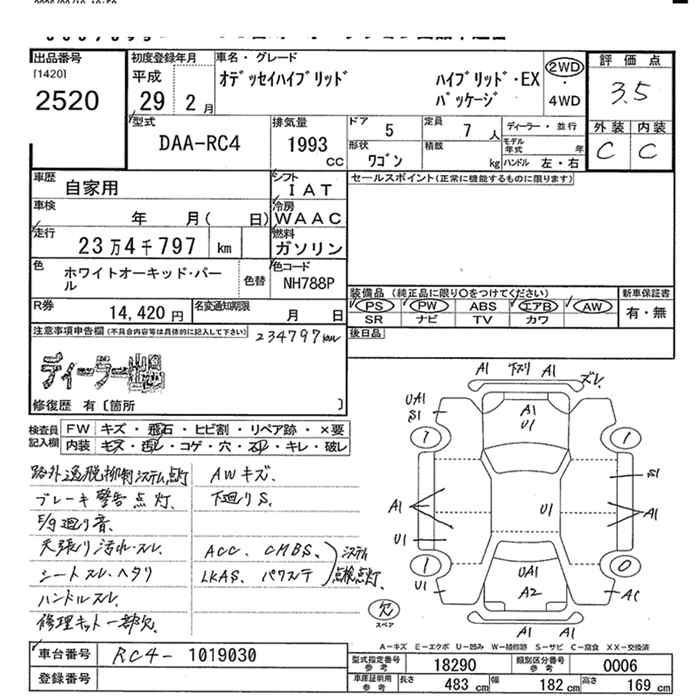 出品番号
[1420]
2520
初度登録年月
平成
29 2月
車名・グレード
オデッセイハイブリッド ハイブリッド・EX
パッケージ
2WD
・
4WD
評価点
3.5
外装 内装
C C
型式
DAA-RC4
排気量
1993
CC
ドア 5
定員 7 人
形状 ワゴン
積載 kg
ディーラー・並行
モデル年式 年
ハンドル 左・右
車歴 自家用
シフト
IAT
車検 年 月( 日)
冷房
WAAC
走行 23万4千797 km
燃料
ガソリン
色 ホワイトオーキッド・パール
色替
色コード
NH788P
R券 14,420円
名変通知期限 月 日
セールスポイント(正常に機能するものに限ります)
装備品(純正品に限り○をつけてください)
PS PW ABS エアB AW
SR ナビ TV カワ
新車保証書
有・無
後日品
注意事項申告欄(不具合内容等は具体的に記入して下さい)
234797km
ディーラー出品
修復歴 有〔箇所 〕
検査員記入欄
FW キズ・飛石・ヒビ割・リペア跡・×要
内装 キズ・汚レ・コゲ・穴・スレ・キレ・破レ
路外逸脱抑制システム点灯
ブレーキ警告点灯.
天張り汚れ・スレ
シートスレ・ヘタリ
ハンドルスレ
修理キット一部欠
AWキズ.
下廻りS.
ACC、CMBS、
LKAS、パワステ
システム
点検点灯.
A1 下スリ A1 ズレ
UA1
S1
A1
U1
A1
U1
U1
U1
UA1
A2
S1
A1
A1 A1
欠
スペア
A-キズ E-エクボ U-凹み W-補修跡 S-サビ C-腐食 XX-交換済
車台番号 RC4- 1019030
登録番号
型式指定番号
参考
18290
類別区分番号
参考
0006
車庫証明用
参考
長さ 483 cm
幅 182 cm
高さ 169 cm